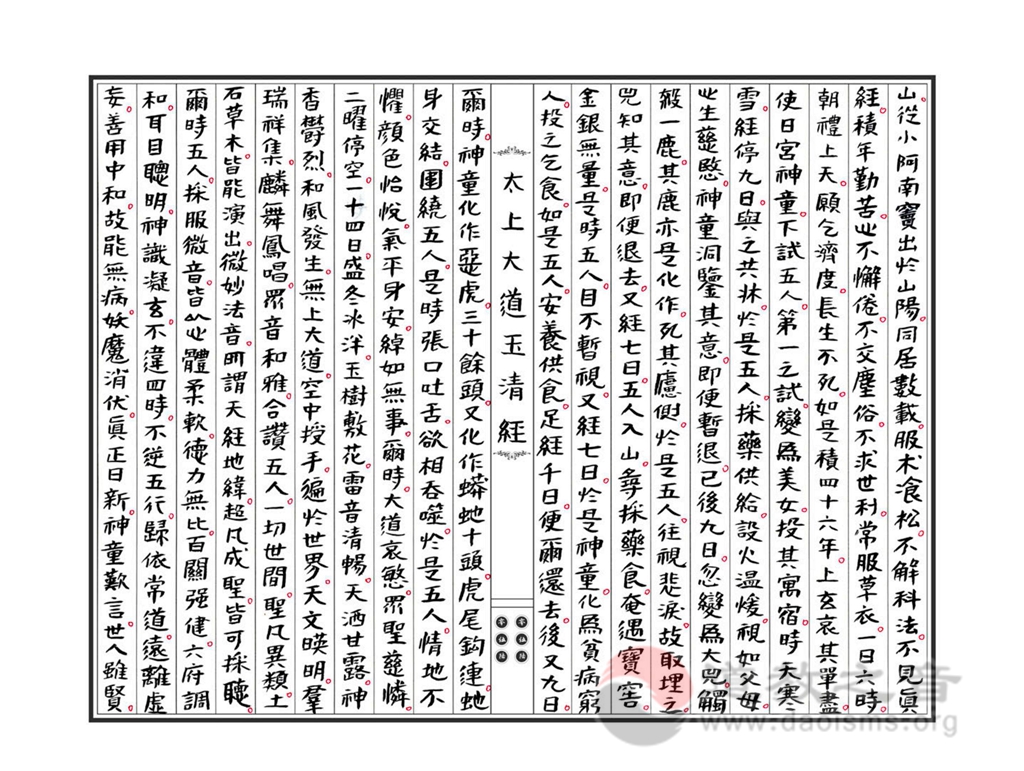 山從小阿南竇出於山陽。同居數載。服朮飡松。不解科法。不見真
經。積年勤苦。心不懈倦。不交塵俗。不求世利。常服草衣。一日六時
朝禮上天。願乞濟度。長生不死。如是積四十六年。上玄哀其單盡。
使日宮神童。下試五人。第一之試。變為美女。投其寓宿。時天寒冬
雪。經停九日。與之共牀。於是五人。採藥供給。設火溫煖。視如父母。
心生慈愍。神童洞鑒其意。即便暫退。已後九日。忽變為大兕。觸
殺一鹿。其鹿亦是化作。死其廬側。於是五人往視悲淚。故取埋之。
兕知其意。即便退去。又經七日。五人入山。尋採藥食。奄遇寶窖。
金銀無量。是時五人。目不暫視。又經七日。於是神童。化為貧病窮
人。投之乞食。如是五人。安養供食。足經千日。便爾還去。後又九日。
太上大道玉清經
爾時。神童化作惡虎。三十餘頭。又化作蟒虵十頭。虎尾鈎連。虵
身交結。圍繞五人。是時張口吐舌。欲相吞噬。於是五人。情地不
懼。顏色怡悅。氣平身安。綽如無事。爾時。大道哀愍。眾聖慈憐。
二曜停空。一十四日。盛冬冰泮。玉樹敷花。雷音清暢。天洒甘露。神
香欝烈。和風發生。無上大道。空中授手。遍於世界。天文暎明。羣
瑞祥集。麟舞鳳唱。眾音和雅。合讚五人。一切世間。聖凡異類。土
石草木。皆能演出。微妙法音。所謂天經地緯。超凡成聖。皆可採聽。
爾時五人。採服微音。皆以心體柔軟。德力無比。百關强健。六府調
和。耳目聰明。神識凝玄。不違四時。不逆五行。歸依常道。遠離虛
妄。善用中和。故能無病。妖魔消伏。真正日新。神童歎言。世人雖賢。
道教之音
www.daoisms.org